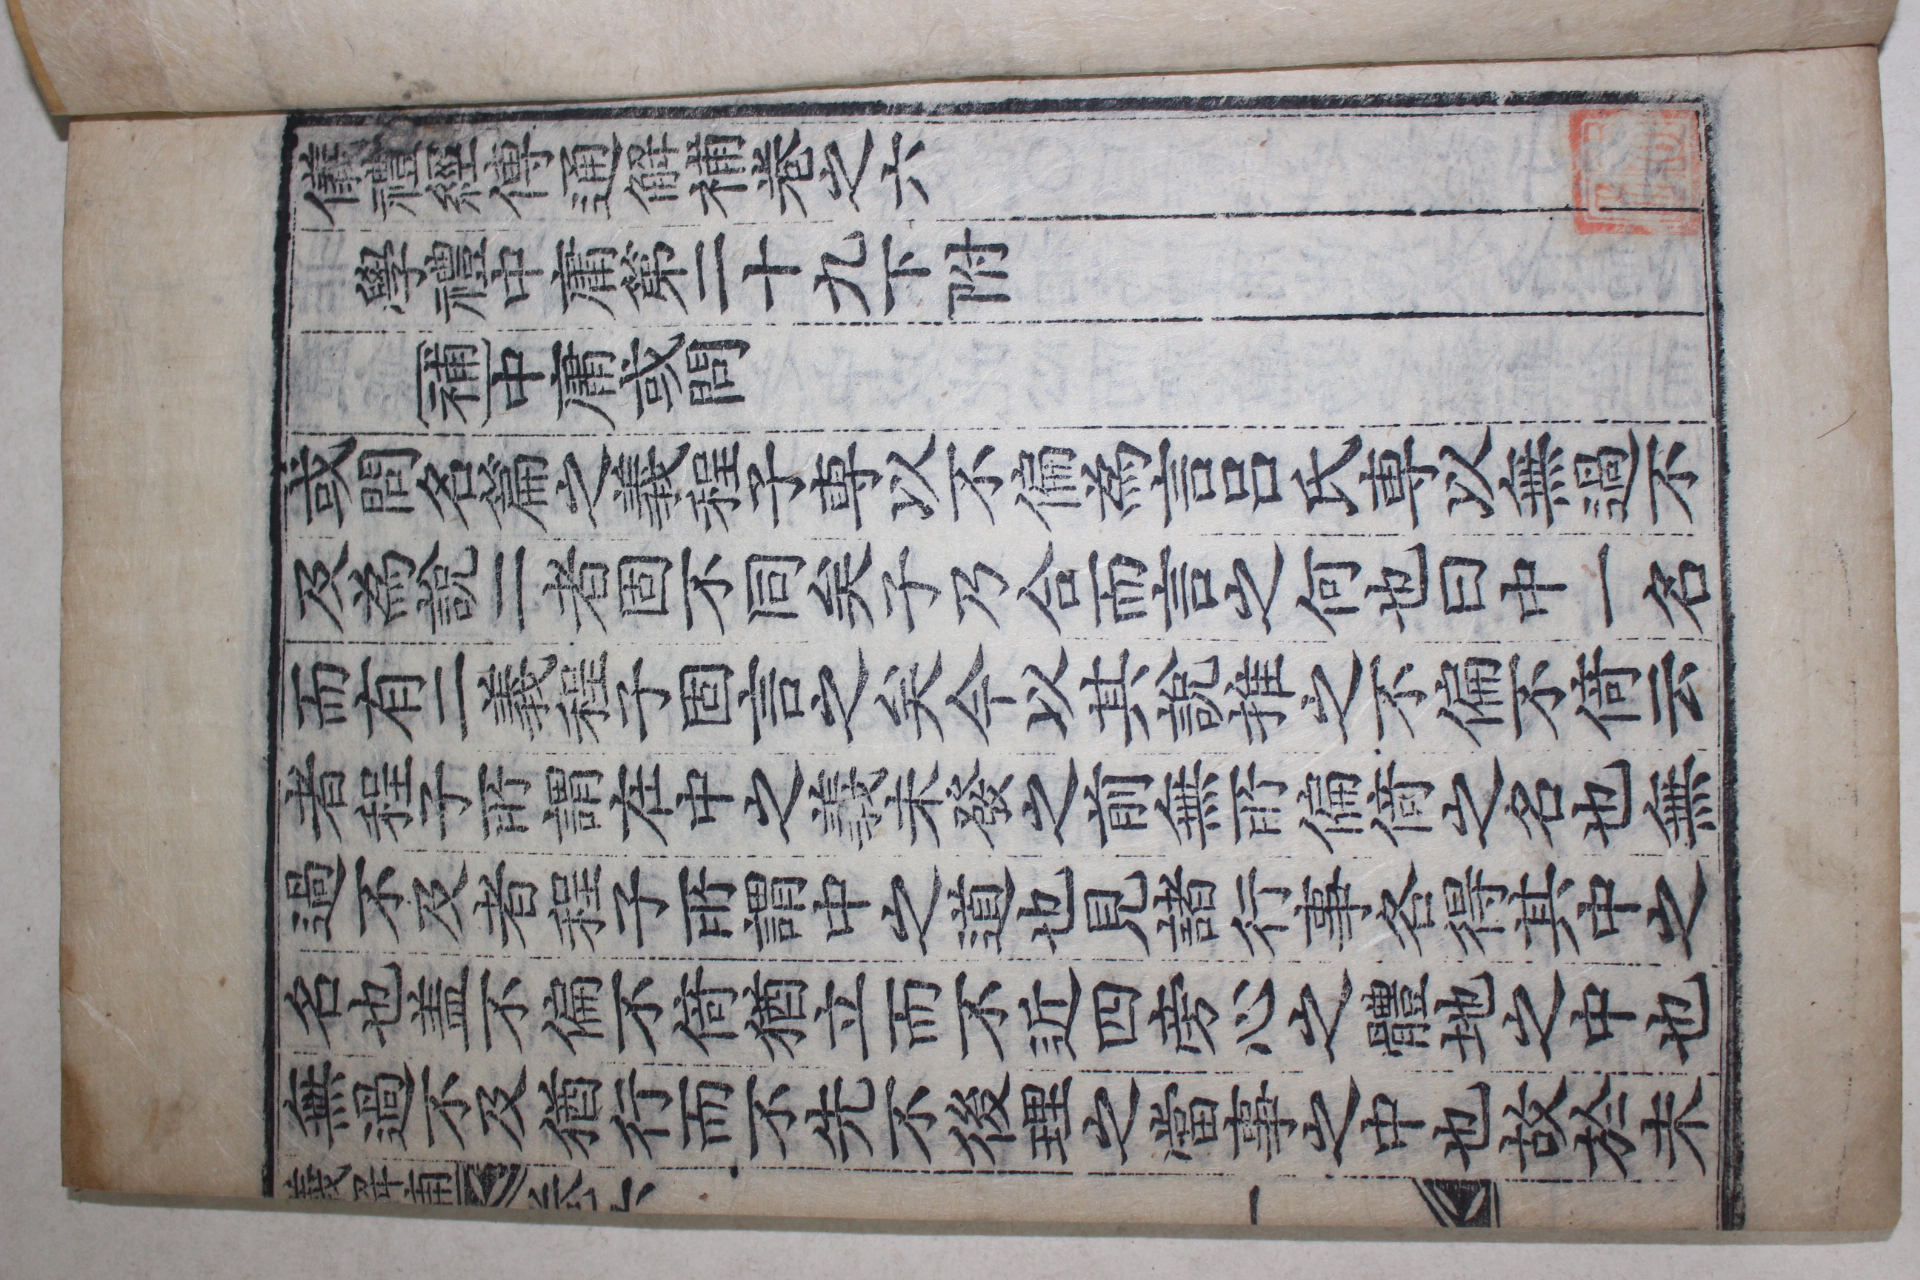 儀禮經傳通解補卷之六
學禮中庸第二十九下附
〔補〕中庸或問
或問名篇之義程子專以不偏為言呂氏專以無過不
及為說二者固不同矣子乃合而言之何也曰中一名
而有二義程子固言之矣今以其說推之不偏不倚云
者程子所謂在中之義未發之前無所偏倚之名也無
過不及者程子所謂中之道也見諸行事各得其中之
名也盖不偏不倚猶立而不近四旁心之體地之中也
無過不及猶行而不先不後理之當事之中也故於未